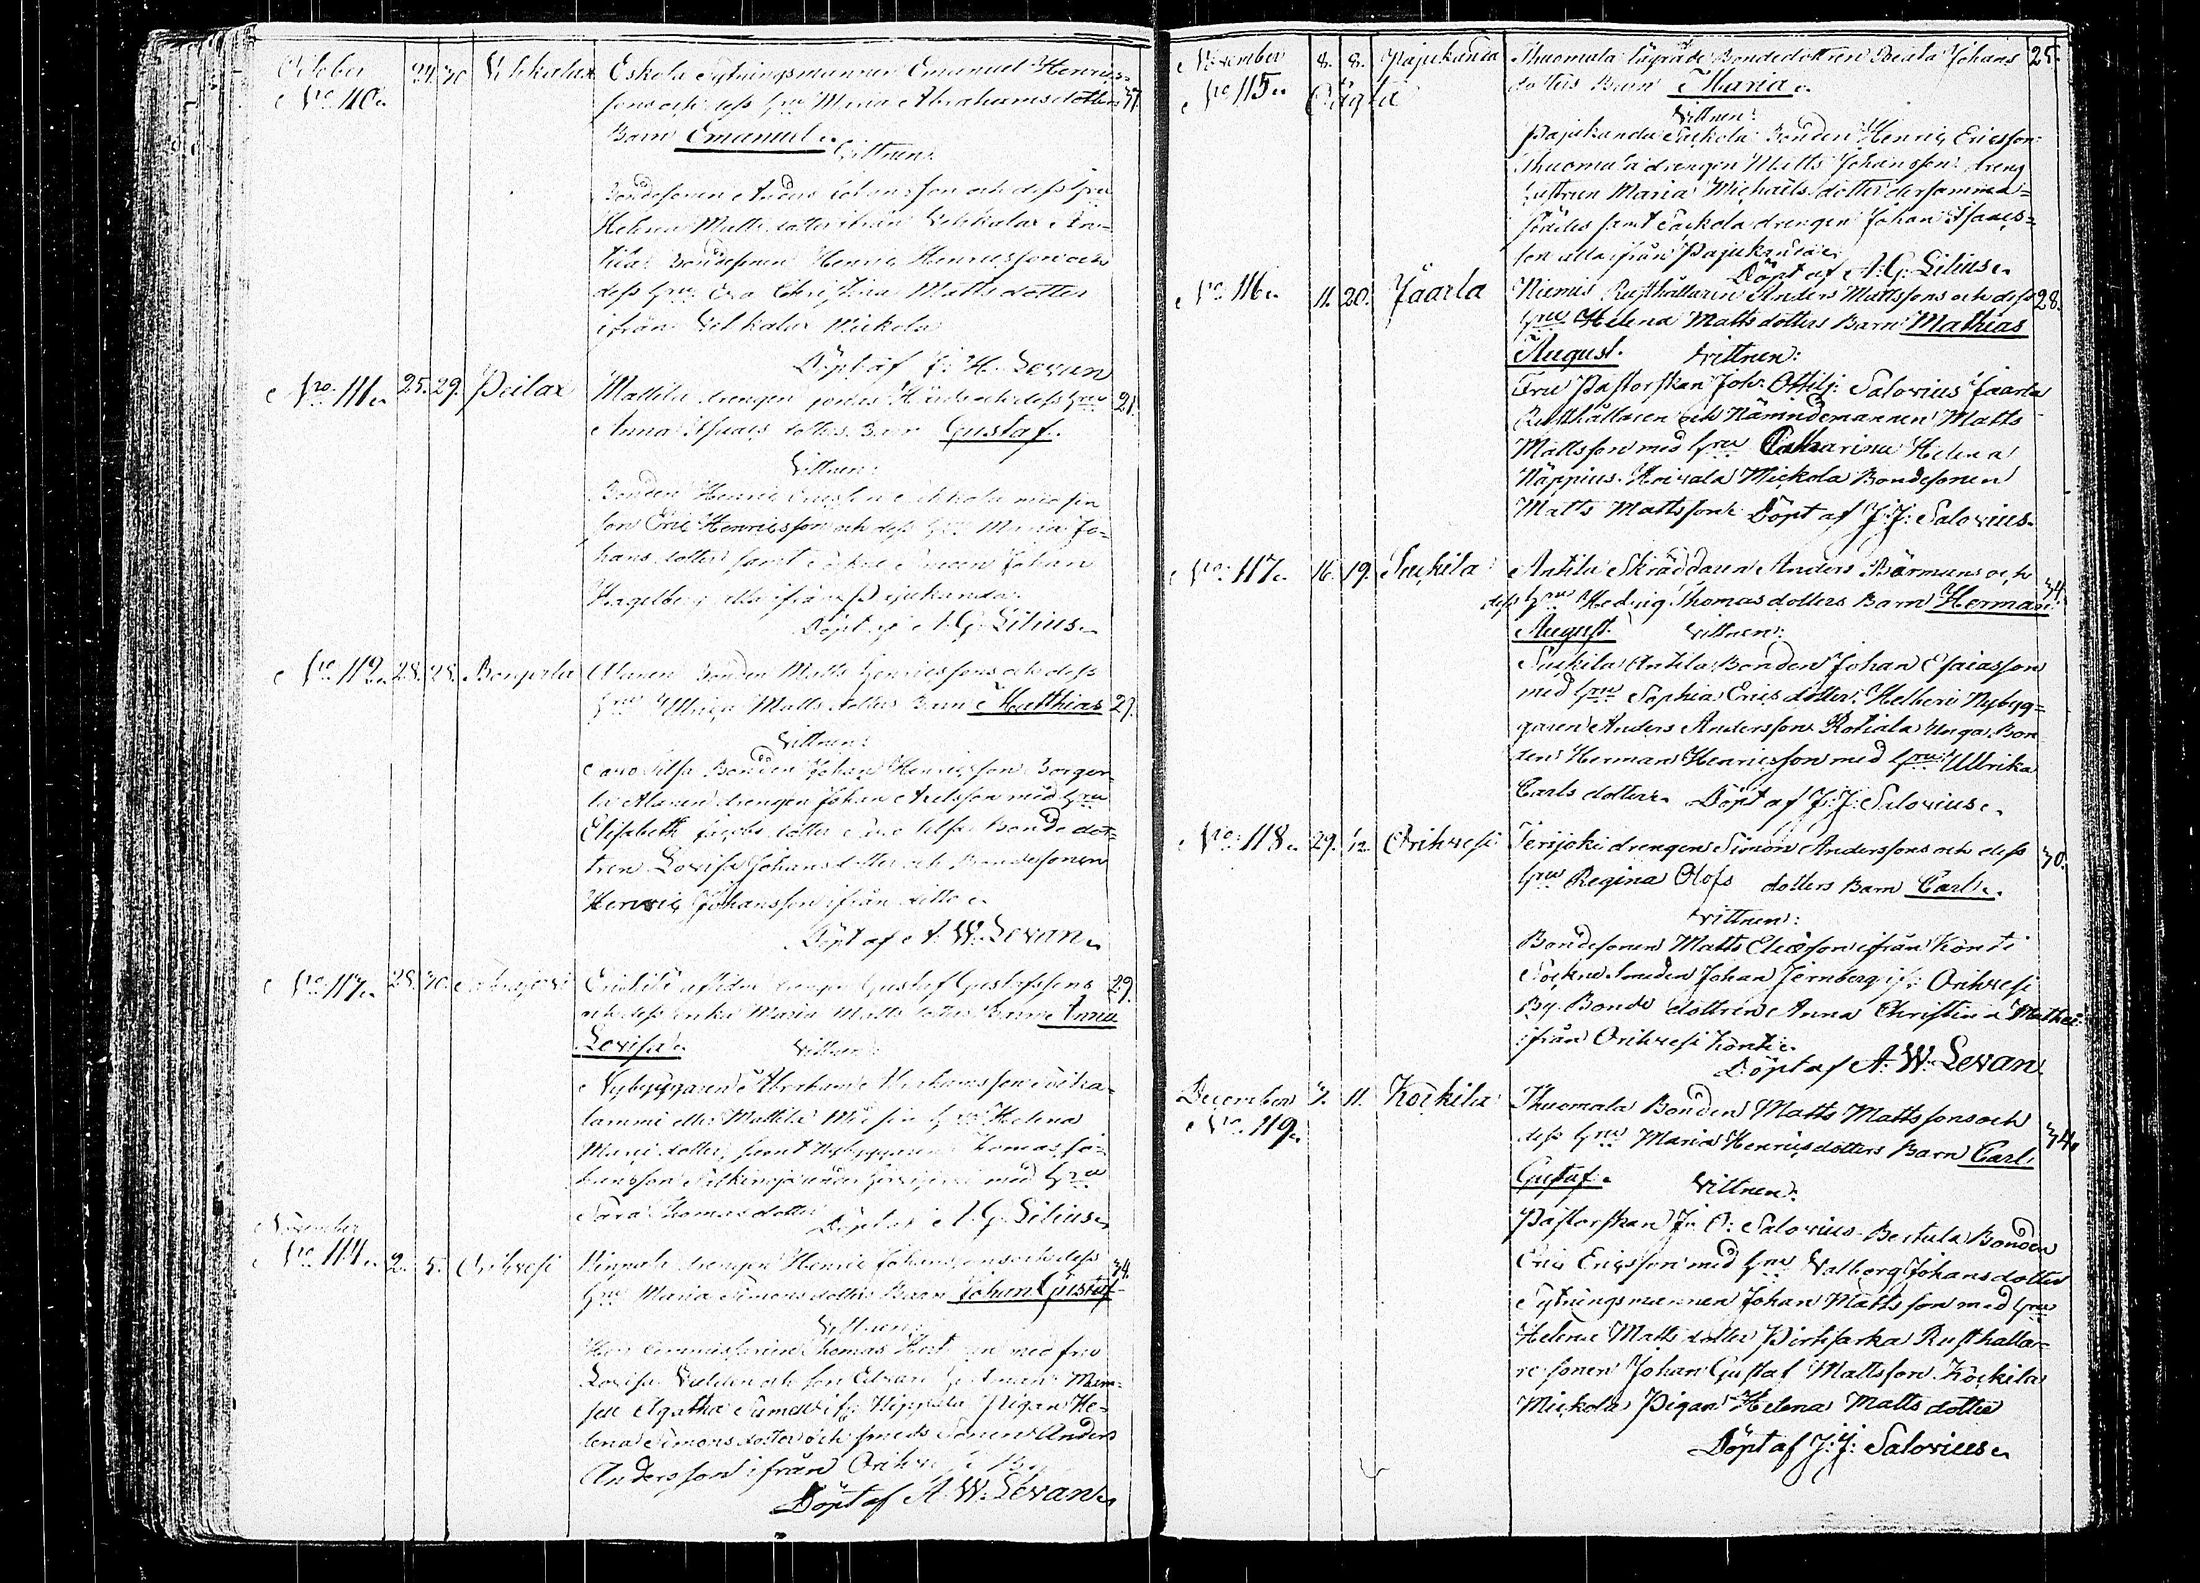 October 24. 30. Vehkalax Eskola Sytningsmannen Emanuel Henrics=
No 110. sons och dess hru Maria Abrahamsdotters 37.
Barn Emanuel.
Vittnen:
Bondesonen Anders Johansson och dess hru
Helena Mattsdotter ifrån Vehkalax An=
tila: Bondesonen Henric Henricsson och
dess hru Eva Christina Mattsdotter
ifrån Vehkalax Mickola
Döpt af J. H. Levan
No. 111. 25. 29. Peilax Mattila drengen och dess hru 21.
Anna Isaacs dotters Barn Gustaf.
Vittnen:
Bonden Henric Ericsson med sin
son Eric Henricsson och dess hru Maria Jo=
hans dotter samt Johan
Hagelberg alla ifrån Pajukanda.
Döpt af A. G. Lilius.
No 112. 28. 28. Alanen Bonden Matts Henricssons och dess
hru Ulrica Matts dotters Barn Matthias 27.
Vittnen:
Bonden Johan Henricsson
Alanen drengen Johan Axelsson med hru
Elisabeth Jacobs dotter Bonde dot=
tren Lovisa Johansdotter och Bondesonen
Henric Johansson ifrån ditto.
Döpt af A. W. Levan.
No 113. 28. 30. aflidne drengen Gustaf Gustafssons 29.
och dess enka Maria Matts dotters Barn Anna
Lovisa.
Vittnen:
Nybyggaren Abraham Abrahamsson
lammi eller Mattila med sin hru Helena
dotter, samt Nybyggaren Thomas Jo=
hansson med hru
Sara Thomas dotter
Döpt af A. G. Lilius.
November
No 114. 2. 5. Orihvesi drengen Henric Johanssons och dess 34.
hru Maria Simonsdotters Barn Johan Gustaf.
Vittnen:
Herr Commissarien Thomas med fru
Lovisa och son Edvard Mam=
sell Agatha Pigan He=
lena Simons dotter och smeds Sonen Anders
Andersson ifrån Orihvesi By
Döpt af A. W. Levan.
November 8. 8. Pajukanda Thuomala lägrade Bondedottren Beata Johans 25.
No 115. Oägta dotters Barn Maria.
Vittnen:
Pajukanda Säckola Bonden Henric Ericsson:
Thuomala drengen Matts Johansson: dreng
hustrun Maria Michaels dotter dersamma=
städes samt Säckola drengen Johan Isaacs=
son alla ifrån Pajukanda.
Döpt af A. G. Lilius.
No 116. 11. 20. Jäärla Niemis Rusthållaren Anders Mattssons och dess 28.
hru Helena Matts dotters Barn Mathias
August. Vittnen:
Fru Pastorskan Joh: Ottilj: Salovius Jäärla
Rusthållaren och Nämndemannen Matts
Mattsson med hru Catharina Helena
Näppius. Hoivala Mickola Bondesonen
Matts Mattsson. Döpt af J: J: Salovius.
No: 117. 16. 19. Suckila Antila Skräddaren Anders Bärmans och 34.
dess hru Hedvig Thomas dotters Barn Herman
August. Vittnen:
Suckila Antila Bonden Johan Esaiasson
med hru Sophia Erics dotter: Helberi Nybyg=
garen Anders Andersson Rotiala Unga Bon
den Herman Henricsson med hru Ulbrika
Carls dotter. Döpt af J: J: Salovius.
No: 118. 29. 1/12 Orihvesi Terijoki drengen Simon Anderssons och dess 30.
hru Regina Olofs dotters Barn Carl.
Vittnen:
Bondesonen Matts Eliasson ifrån Könti
Sockne Smeden Johan Jernberg if: Orihvesi
By. Bonde dottren Anna Christina Mathei:
ifrån Orihvesi Könti.
Döpt af A. W. Levan.
December 7. 11. Köckilä Thuomala Bonden Matts Mattssons och
No 119. dess hru Maria Henricsdotters Barn Carl 34.
Gustaf. Vittnen:
Pastorskan J: O: Salovius Bertula Bonden
Eric Ericsson med hru Valborg Johansdotter
Sytningsmannen Johan Mattsson med hru
Helena Matts dotter Pirhsarka Rusthålla=
re sonen Johan Gustaf Mattsson Köckilä
Mickola Pigan Helena Matts dotter
Döpt af J: J: Salovius.